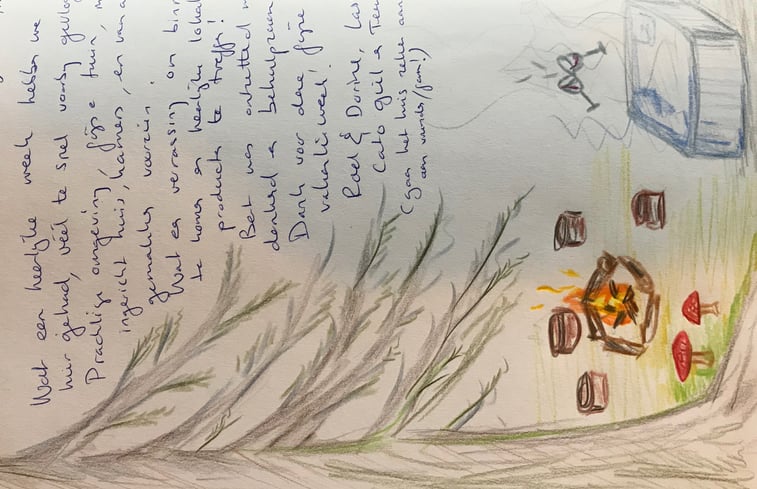 Wat een heerlijke week hebben we
hier gehad, véél te snel voorbij
Prachtige omgeving, fijne tuin, m
ingericht huis, kamers, en van a
gemakken voorzien!
Wat een verrassing om bin
te komen en heerlijke lokal
producten te treffen!
Bet was ontzettend
denkend en behulpzaam
Dank voor deze fijne
vakantieweek!
Roel & Dorine, Las
Cato, Giel & Teun
(gaan het huis zeker aan
aan vrienden/fam!)